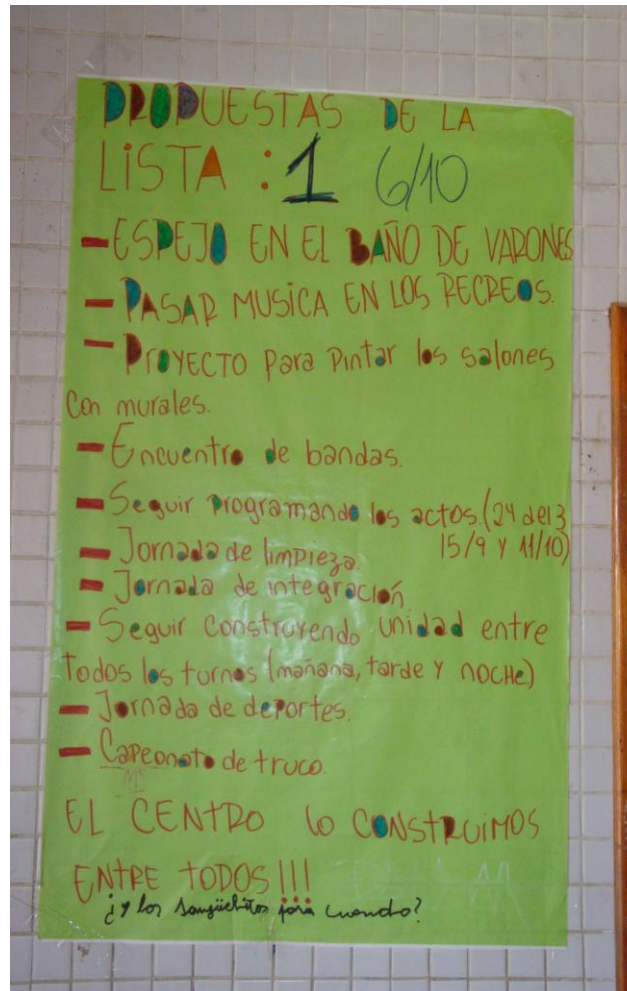 PROPUESTAS DE LA
LISTA : 1 6/10
- ESPEJO EN EL BAÑO DE VARONES
- PASAR MUSICA EN LOS RECREOS.
- PROYECTO para Pintar los salones
Con murales.
- Encuentro de bandas.
- Seguir programando los actos. (24 del 3
15/9 Y 11/10)
- Jornada de limpieza.
- Jornada de integración
- Seguir Construyendo unidad entre
todos los turnos (mañana, tarde Y NOCHE)
- Jornada de deportes.
- Capeonato de truco.
M
EL CENTRO lo CONSTRUIMOS
ENTRE TODOS !!!
¿y los sangüchitos para cuando?